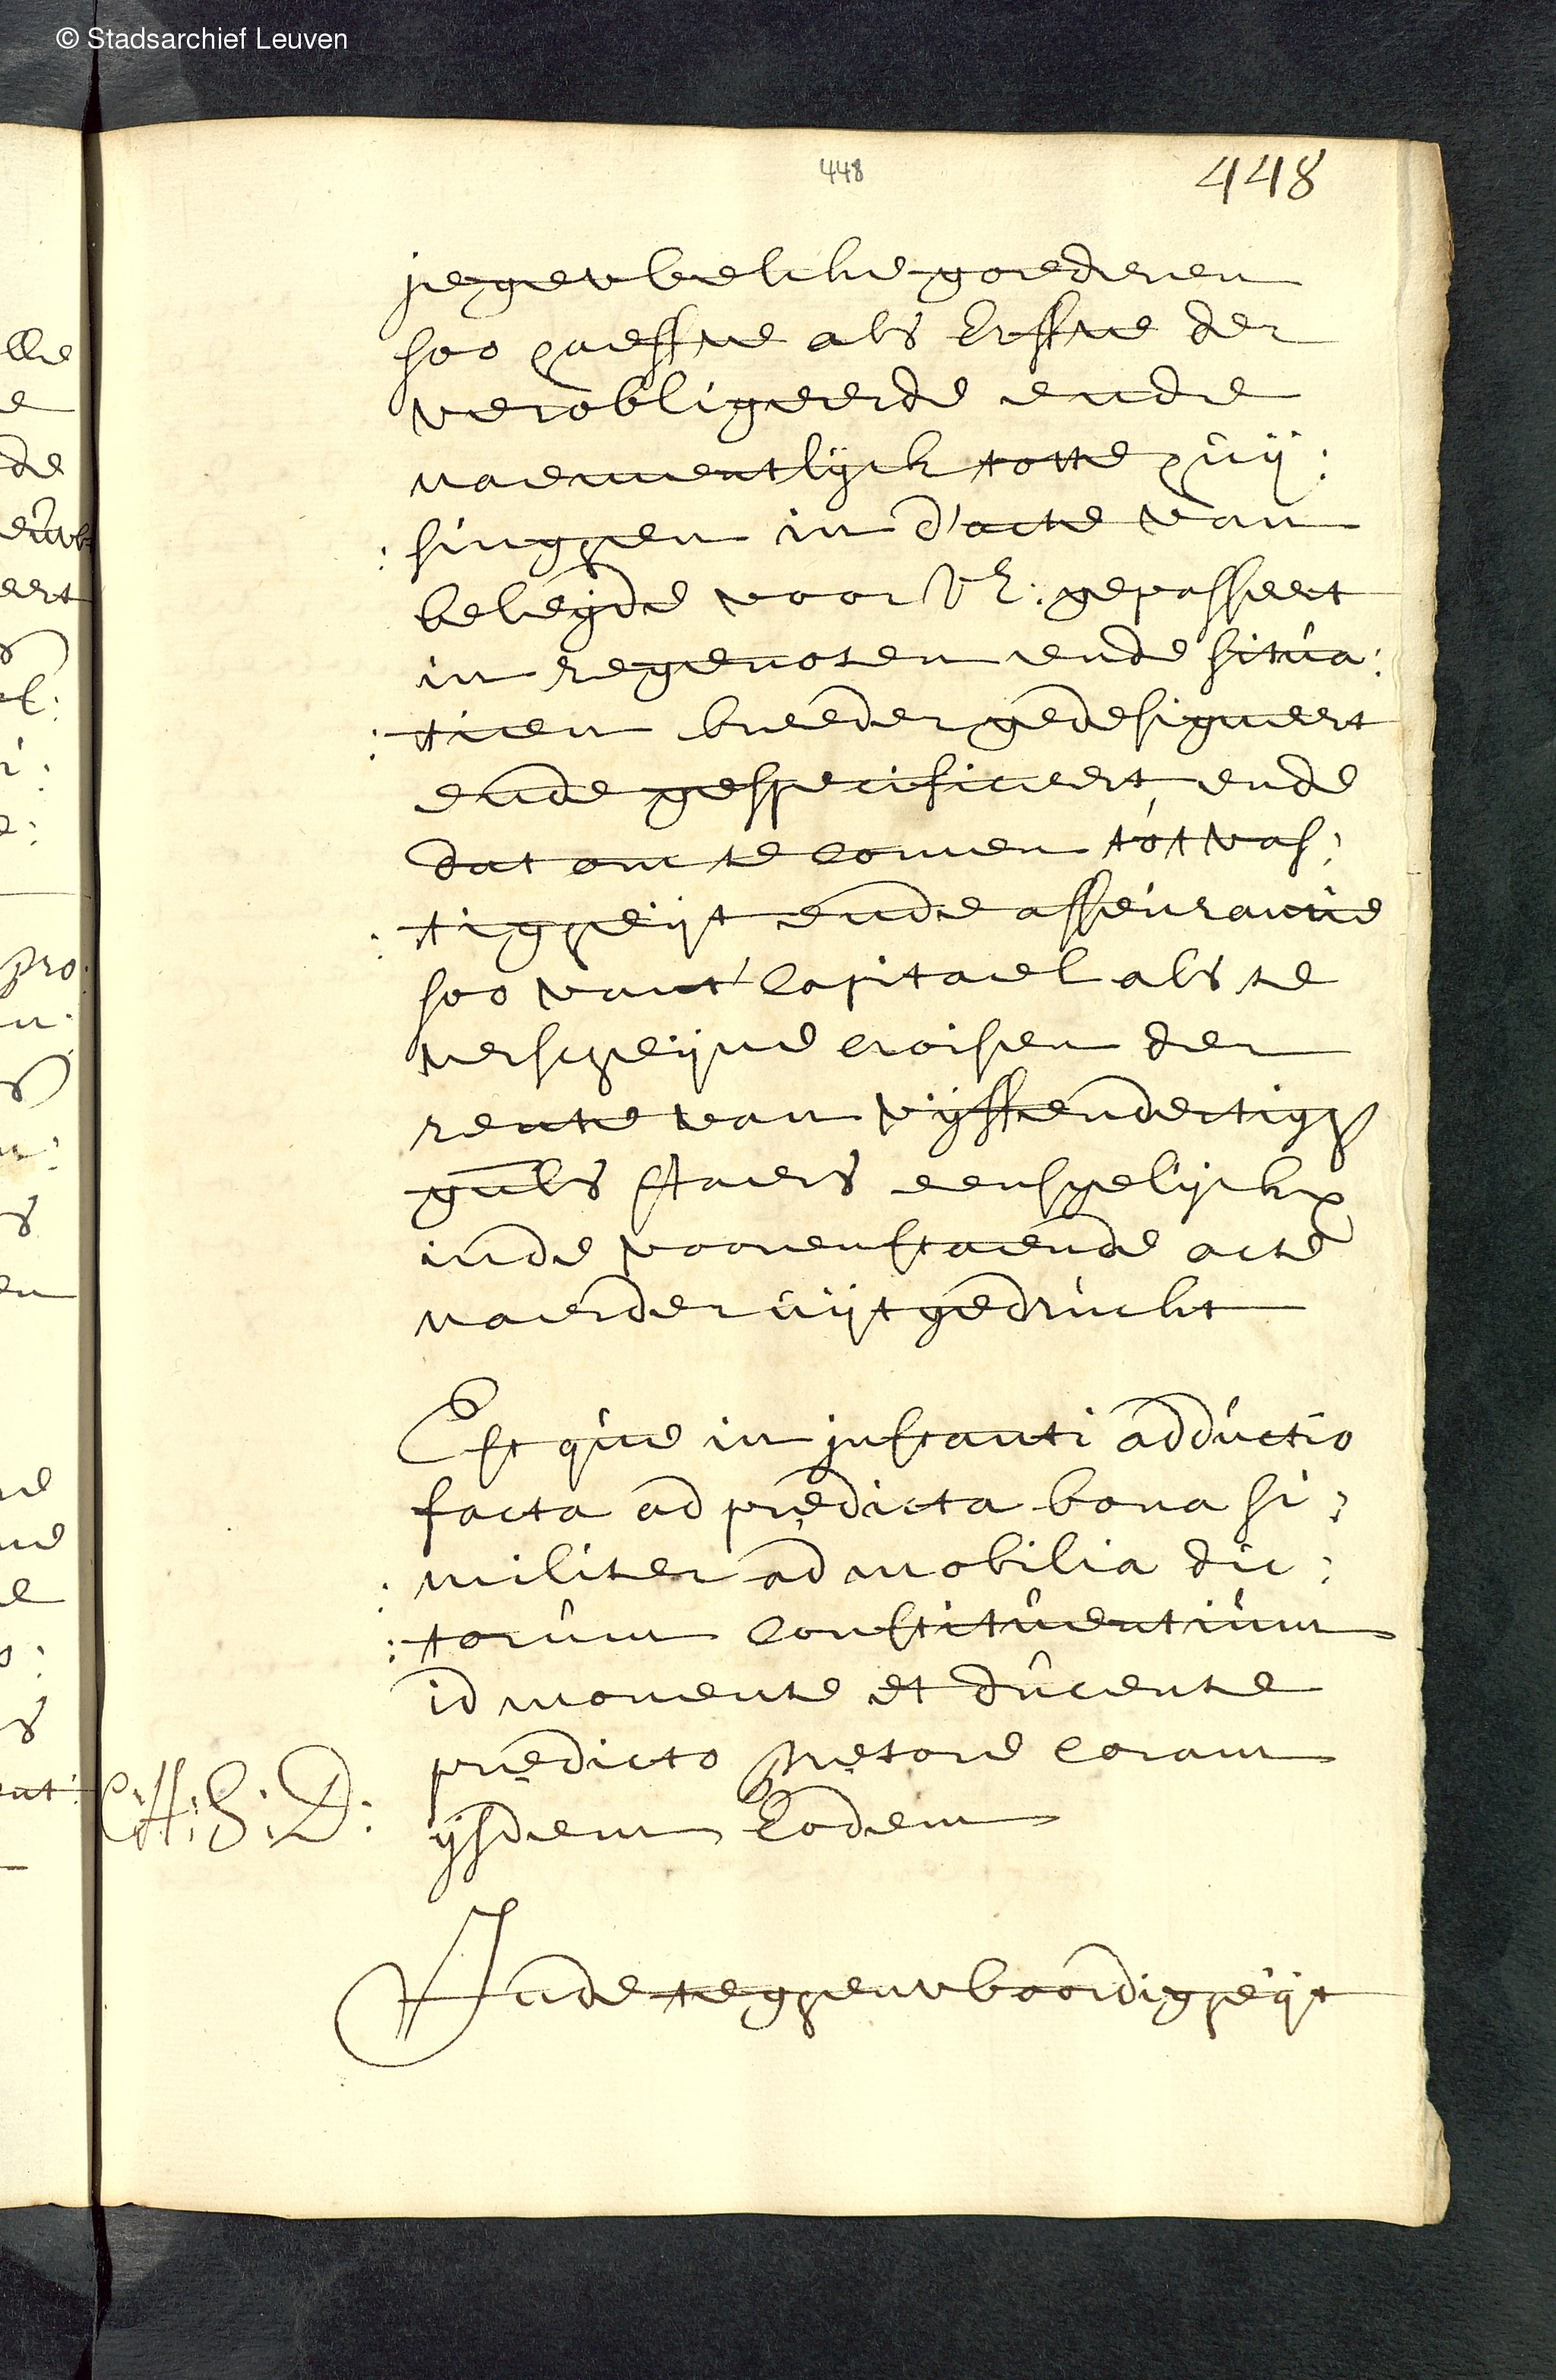 © Stadsarchief Leuven
448
448
jegewelcke goederen
soo haeffve als Erffve der
verobligeerde ende
naementlijck totte huij:
:singhen in d'acte van
beleijde voor VE: gepasseert
in regenoten ende situa:
:tien breeder gedesigneert
ende gespecificeert, ende
dat om te comen tot vas:
:tigheijt ende asseurancie
soo vant' capitael als te
verscheijne croisen der
rente van vijffendertigh
guls staers
inde voorenstaende acte
naerder uijtgedruckt
Estque in instanti adductio
facta ad prędicta bona si:
:militer ad mobilia dic:
:torum constituentium
id monente et ducente
prędicto prętore coram
ijsdem Eodem
Inde teghenwoordigheijt